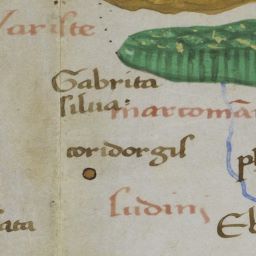 Variste
Gabrita
silua
marcomā
coridorgis
ludini